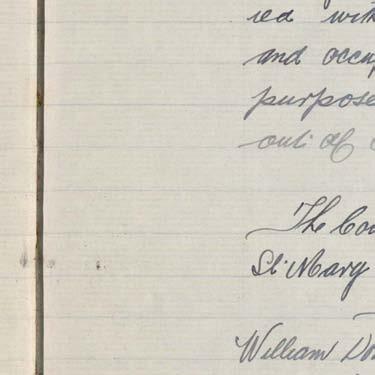 ied with
and occup
purpose
out of
The Cou
St. Mary
William Do